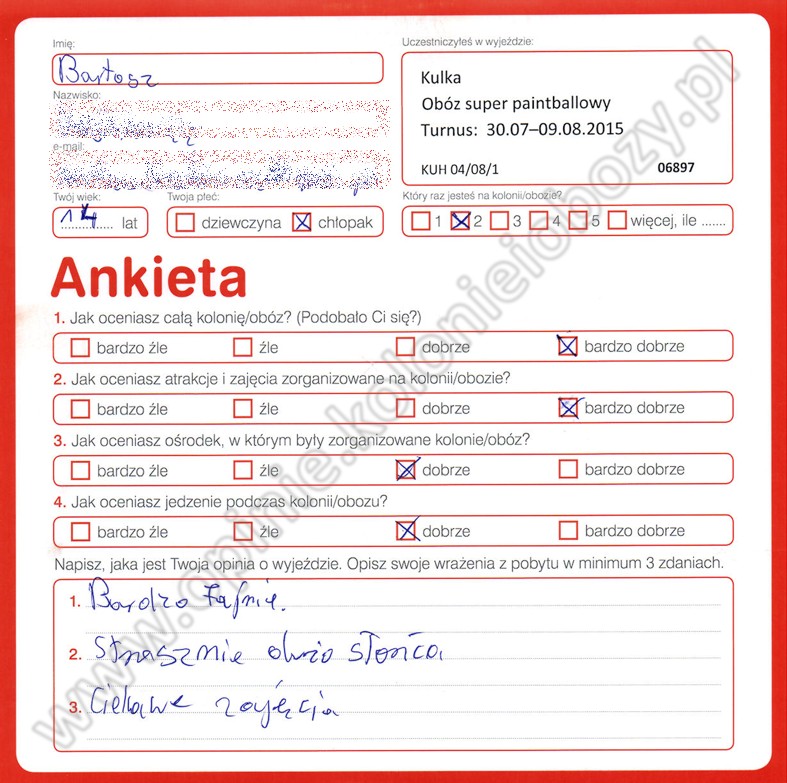 Imię:
Bartosz
Nazwisko:
e-mail:
Uczestniczyłeś w wyjeździe:
Kulka
Obóz super paintballowy
Turnus: 30.07–09.08.2015
KUH 04/08/1 06897
Twój wiek:
14 lat
Twoja płeć:
dziewczyna chłopak
Który raz jesteś na kolonii/obozie?
1 2 3 4 5 więcej, ile .......
Ankieta
1. Jak oceniasz całą kolonię/obóz? (Podobało Ci się?)
bardzo źle źle dobrze bardzo dobrze
2. Jak oceniasz atrakcje i zajęcia zorganizowane na kolonii/obozie?
bardzo źle źle dobrze bardzo dobrze
3. Jak oceniasz ośrodek, w którym były zorganizowane kolonie/obóz?
bardzo źle źle dobrze bardzo dobrze
4. Jak oceniasz jedzenie podczas kolonii/obozu?
bardzo źle źle dobrze bardzo dobrze
Napisz, jaka jest Twoja opinia o wyjeździe. Opisz swoje wrażenia z pobytu w minimum 3 zdaniach.
1. Bardzo fajnie.
2. Strasznie dużo słońca
3. Ciekawe zajęcia
www.opinie.kolonieiobozy.pl